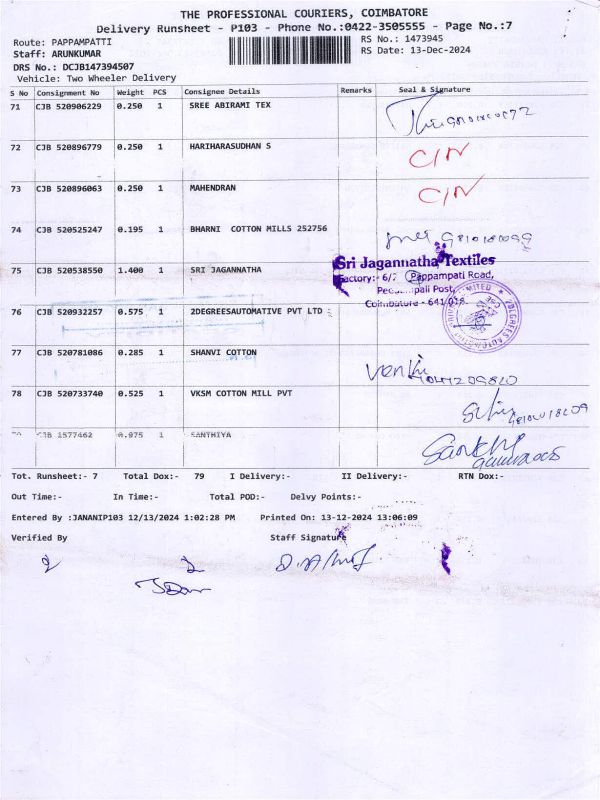 THE PROFESSIONAL COURIERS, COIMBATORE
Delivery Runsheet - P103 - Phone No.:0422-3505555 - Page No.:7
Route: PAPPAMPATTI
RS No.: 1473945
Staff: ARUNKUMAR
RS Date: 13-Dec-2024
DRS No.: DCJB147394507
Vehicle: Two Wheeler Delivery
S No Consignment No Weight PCS Consignee Details Remarks Seal & Signature
71 CJB 520906229 0.250 1 SREE ABIRAMI TEX
72 CJB 520896779 0.250 1 HARIHARASUDHAN S C/N
73 CJB 520896063 0.250 1 MAHENDRAN C/N
74 CJB 520525247 0.195 1 BHARNI COTTON MILLS 252756
Sri Jagannatha Textiles
75 CJB 520538550 1.400 1 SRI JAGANNATHA
Factory:- 6/7 Pappampati Road,
Coimbatore - 641 018.
76 CJB 520932257 0.575 1 2DEGREESAUTOMATIVE PVT LTD
77 CJB 520781086 0.285 1 SHANVI COTTON
78 CJB 520733740 0.525 1 VKSM COTTON MILL PVT
CJB 1577462 0.975 1 SANTHIYA
Tot. Runsheet:- 7 Total Dox:- 79 I Delivery:- II Delivery:- RTN Dox:-
Out Time:- In Time:- Total POD:- Delvy Points:-
Entered By :JANANIP103 12/13/2024 1:02:28 PM Printed On: 13-12-2024 13:06:09
Verified By Staff Signature